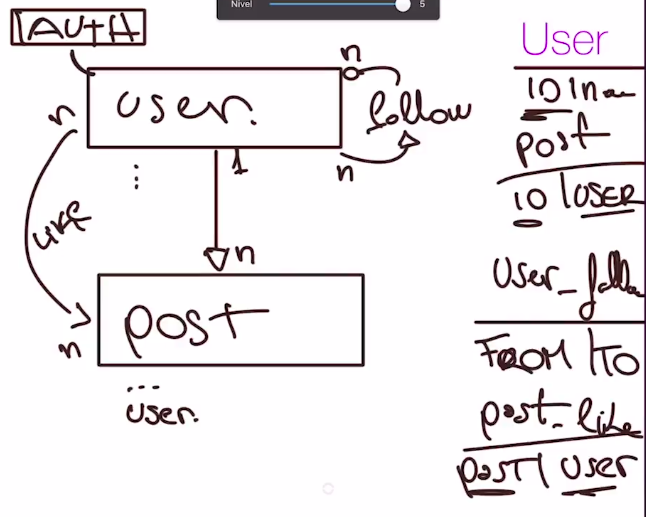 Nivel 5
AUTH
n
user.
n
follow
n
1
⋮
like
n
n
post
...
user.
User
ID | n
post
ID | USER
User_follo
FROM | TO
post_like
post | user